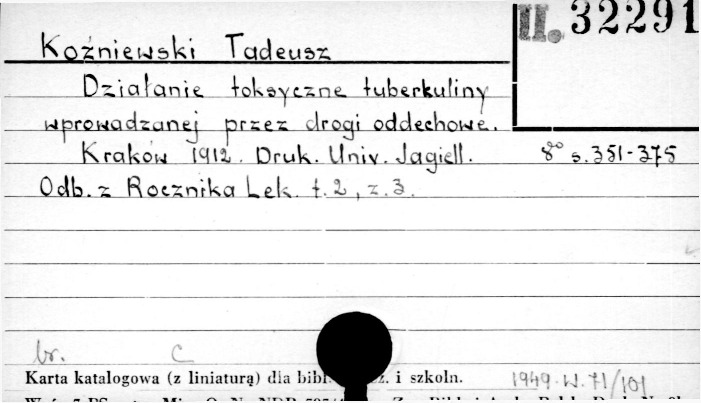 II. 32291
Koźniewski Tadeusz
Działanie toksyczne tuberkuliny
wprowadzanej przez drogi oddechowe.
Kraków 1912. Druk. Univ. Jagiell. 8° s. 351-375
Odb. z Rocznika Lek. t. 2, z. 3.
br. C
Karta katalogowa (z liniaturą) dla bibl. i szkoln. 1949.W.71/101